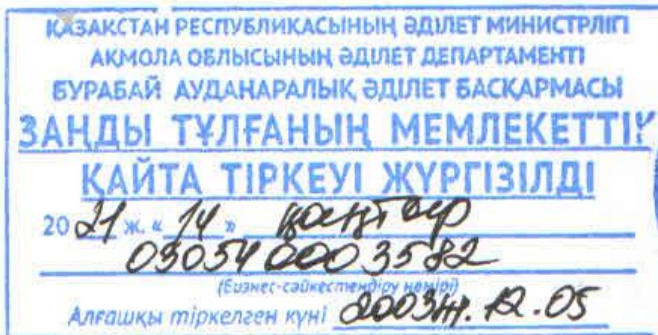 ҚАЗАҚСТАН РЕСПУБЛИКАСЫНЫҢ ӘДІЛЕТ МИНИСТРЛІГІ
АҚМОЛА ОБЛЫСЫНЫҢ ӘДІЛЕТ ДЕПАРТАМЕНТІ
БУРАБАЙ АУДАНАРАЛЫҚ ӘДІЛЕТ БАСҚАРМАСЫ
ЗАҢДЫ ТҰЛҒАНЫҢ МЕМЛЕКЕТТІК
ҚАЙТА ТІРКЕУІ ЖҮРГІЗІЛДІ
2021 ж. «14» қаңтар
030540003582
(бизнес-сәйкестендіру нөмірі)
Алғашқы тіркелген күні 2003ж. 12.05